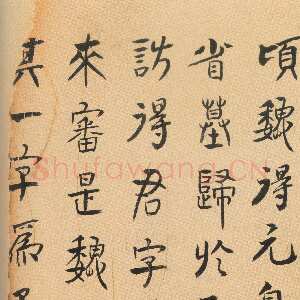 頃魏得元
省墓歸於
訪得君字
來審是魏
其一字為
Shufawang.CN